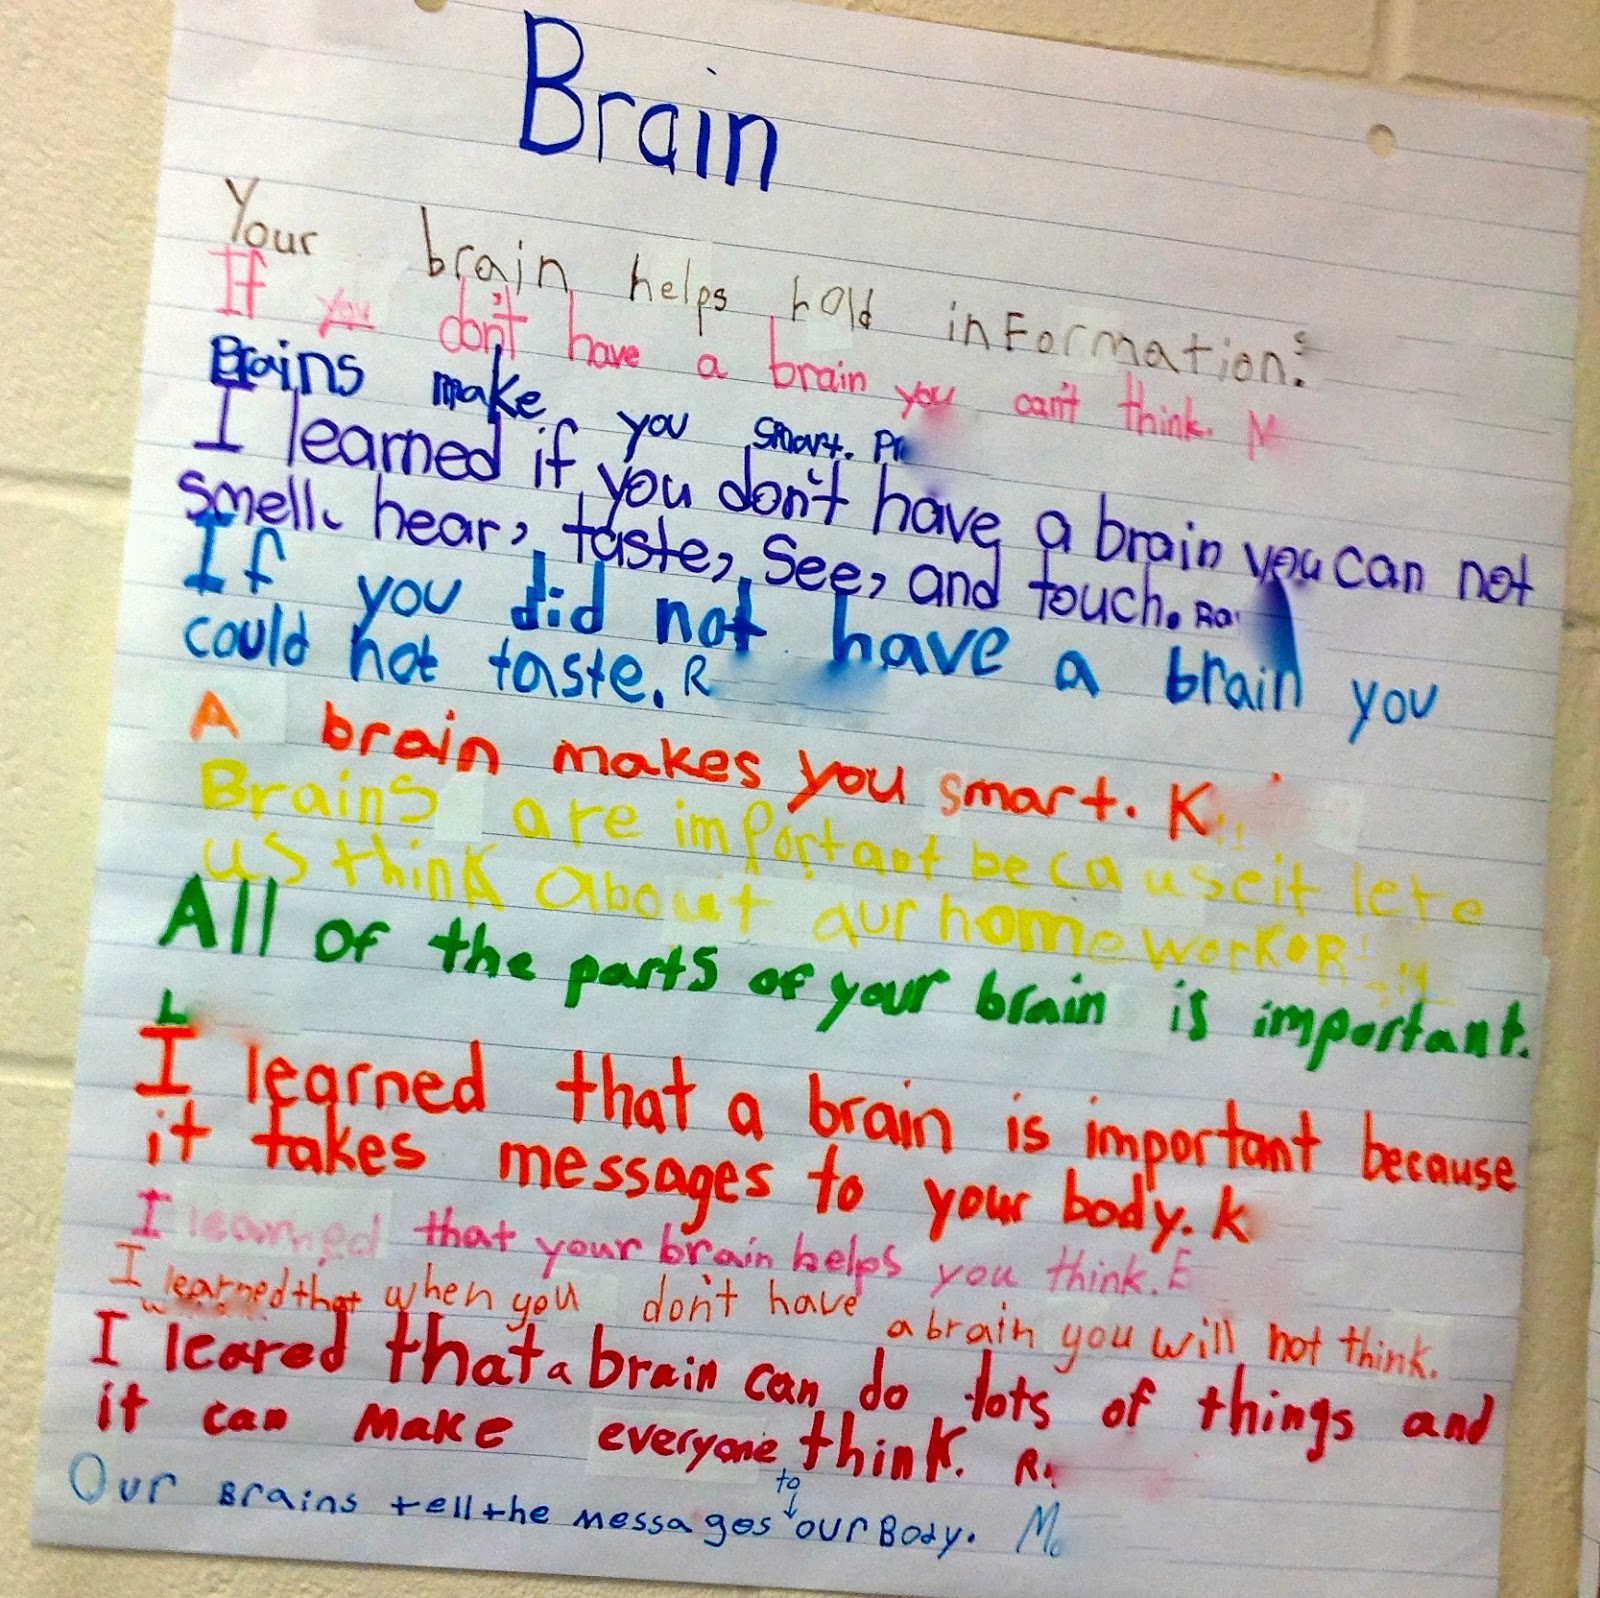 Brain
Your brain helps hold information.
If you don't have a brain you can't think. M
Brains make you smart. Pr
I learned if you don't have a brain you can not
smell, hear, taste, see, and touch. Ra
If you did not have a brain you
could not taste. R
A brain makes you smart. K
Brains are important because it lete
us think about aur home work.
All of the parts of your brain is important.
L
I learned that a brain is important because
it takes messages to your body. K
I learned that your brain helps you think. E
I learned that when you don't have a brain you will not think.
I leared that a brain can do lots of things and
it can make everyone think. R.
Our Brains tell the messages to our Body. M